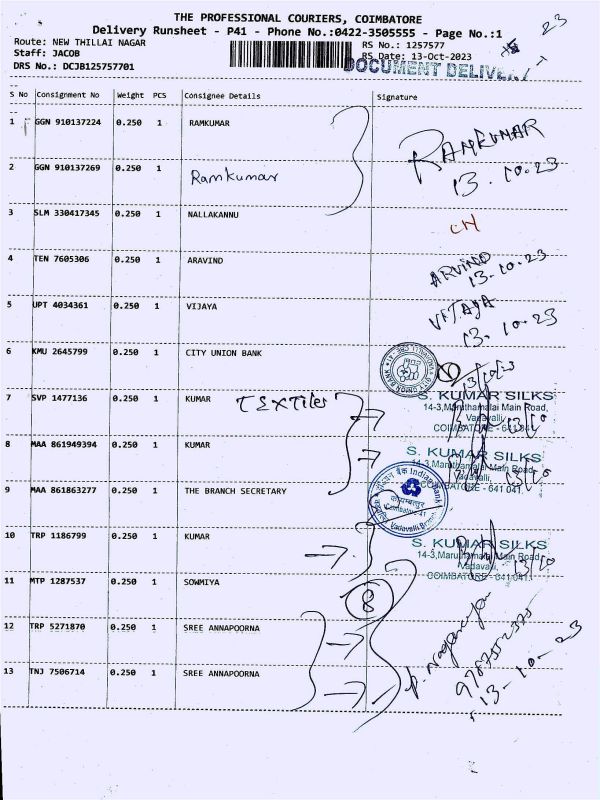 THE PROFESSIONAL COURIERS, COIMBATORE
Delivery Runsheet - P41 - Phone No.:0422-3505555 - Page No.:1
23
Route: NEW THILLAI NAGAR
RS No.: 1257577
Staff: JACOB
RS Date: 13-Oct-2023
DRS No.: DCJB125757701
DOCUMENT DELIVERY
S No Consignment No Weight PCS Consignee Details Signature
1 GGN 910137224 0.250 1 RAMKUMAR
RAMKUMAR
13.10.23
2 GGN 910137269 0.250 1 Ramkumar
3 SLM 330417345 0.250 1 NALLAKANNU
4 TEN 7605306 0.250 1 ARAVIND
ARVIND
13.10.23
5 UPT 4034361 0.250 1 VIJAYA
VIJAYA
13.10.23
6 KMU 2645799 0.250 1 CITY UNION BANK
7 SVP 1477136 0.250 1 KUMAR TEXTiles
S. KUMAR SILKS
14-3,Maruthamalai Main Road,
Vadavalli,
COIMBATORE - 641 041.
8 MAA 861949394 0.250 1 KUMAR
S. KUMAR SILKS
14-3,Maruthamalai Main Road,
COIMBATORE - 641 041.
9 MAA 861863277 0.250 1 THE BRANCH SECRETARY
बैंक Indian Bank
कोयम्बत्तूर
Coimbatore-41
Vadavalli Branch
10 TRP 1186799 0.250 1 KUMAR
S. KUMAR SILKS
14-3,Maruthamalai Main Road,
Vadavalli,
COIMBATORE - 641 041.
13/10
11 MTP 1287537 0.250 1 SOWMIYA
8
12 TRP 5271870 0.250 1 SREE ANNAPOORNA
13 TNJ 7506714 0.250 1 SREE ANNAPOORNA
13-10-23